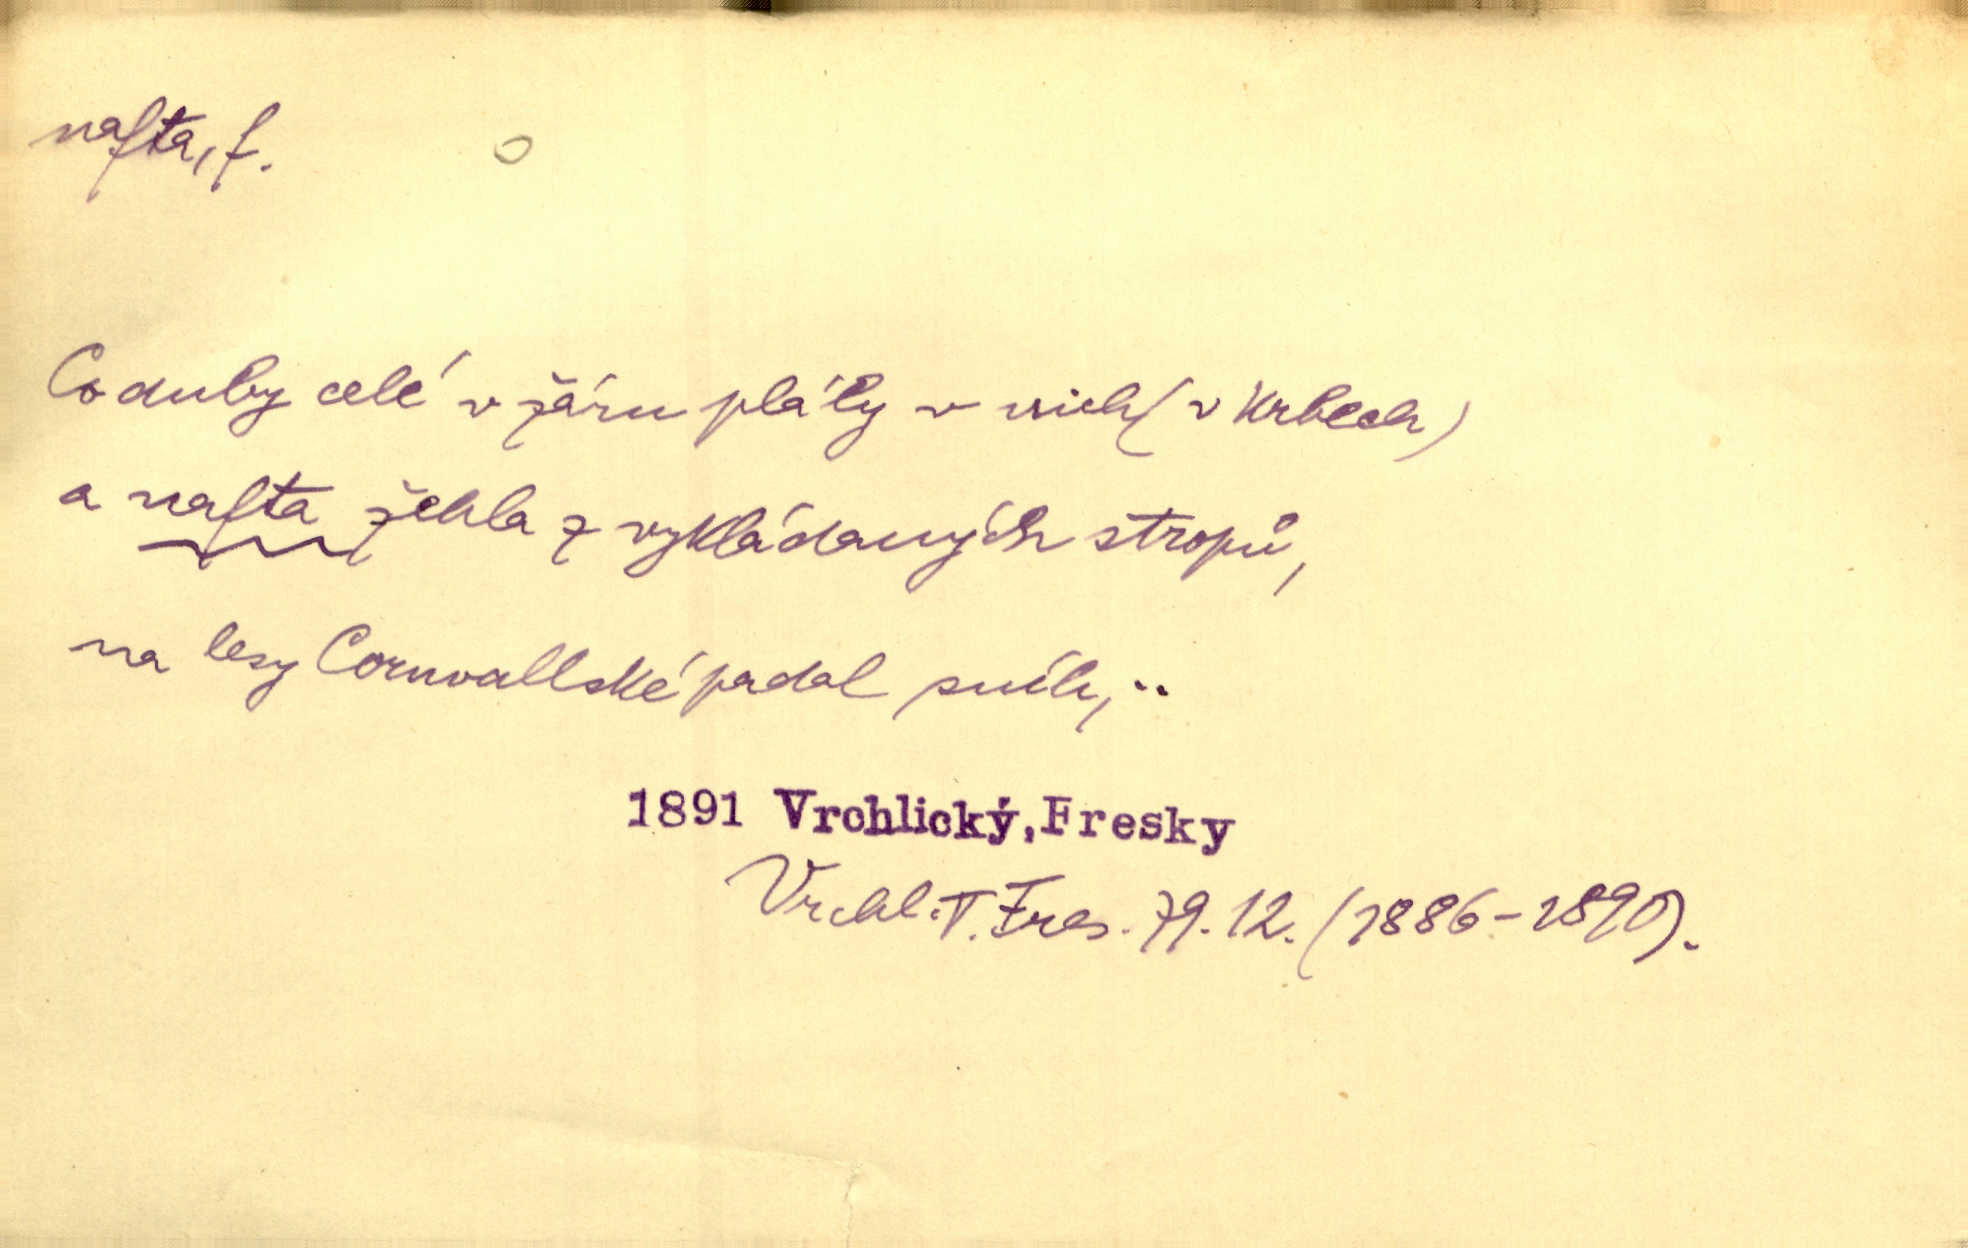 nafta, f.
Co duby celé v žáru plály v nich (v krbech)
a nafta žehla z vykládaných stropů,
na lesy Cornvallské padal sníh, ..
1891 Vrchlický, Fresky
Vrchl. T. Fres. 79. 12. (1886-1890).